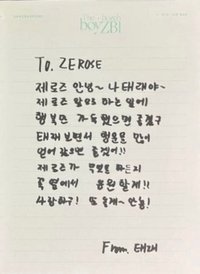 boyZB1
To. ZEROSE
제로즈 안녕~ 나 태래야~
제로즈 앞으로 하는 일에
행복만 가득했으면 좋겠구
태래 보면서 행운을 많이
얻어 갔으면 좋겠어!!
제로즈가 무엇을 하든지
꼭 옆에서 응원할게!!
사랑하구! 또 올게~ 안뇽!
From. 태래